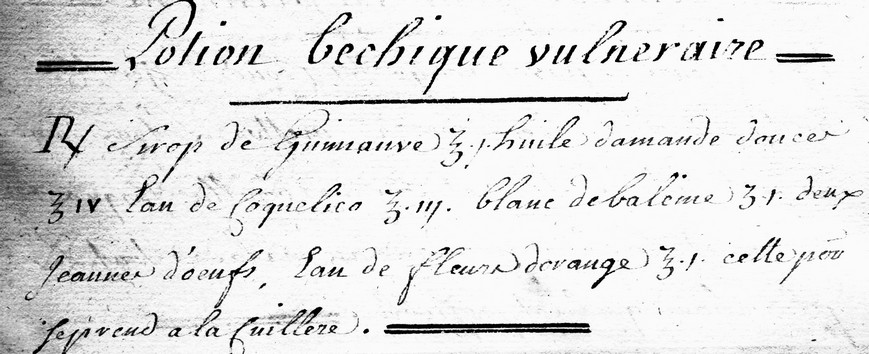 Potion bechique vulneraire
℞ Sirop de Guimauve ʒ.j. huile damande douces
ʒ iv Eau de Coquelico ʒ.iij. blanc debaleme ʒ.1. deux
Jeaunes d'oeufs, Eau de fleurs dorange ʒ.1. cette pōo
seprend a la Cuillere.